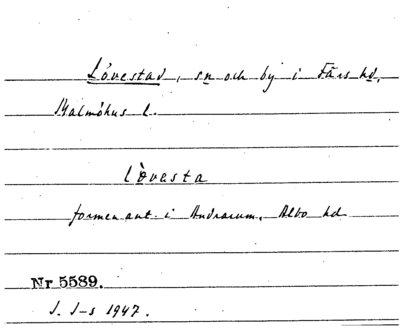 Lövestad, sn och by i Färs hd,
Malmöhus l.
lò̤vesta
formen ant. i Andrarum, Albo hd
Nr 5589.
J. J-s 1947.